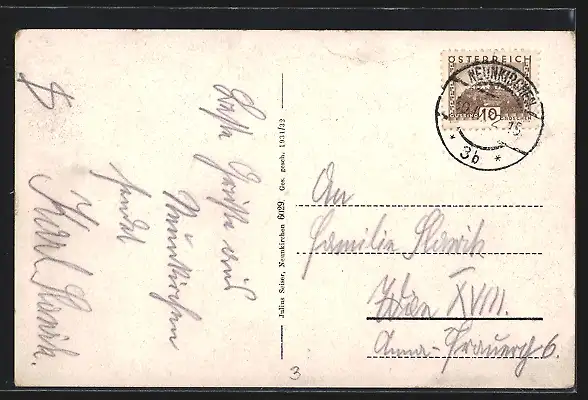 Beste Grüße aus
Neunkirchen
sendet
Karl Slavik.
Julius Seiser, Neunkirchen 6029 Ges. gesch. 1931/32
ÖSTERREICH
10
GROSCHEN
NEUNKIRCHEN
* 3b *
An
Familie Slavik
Wien XVIII.
Anna-Frauerg 6.
3